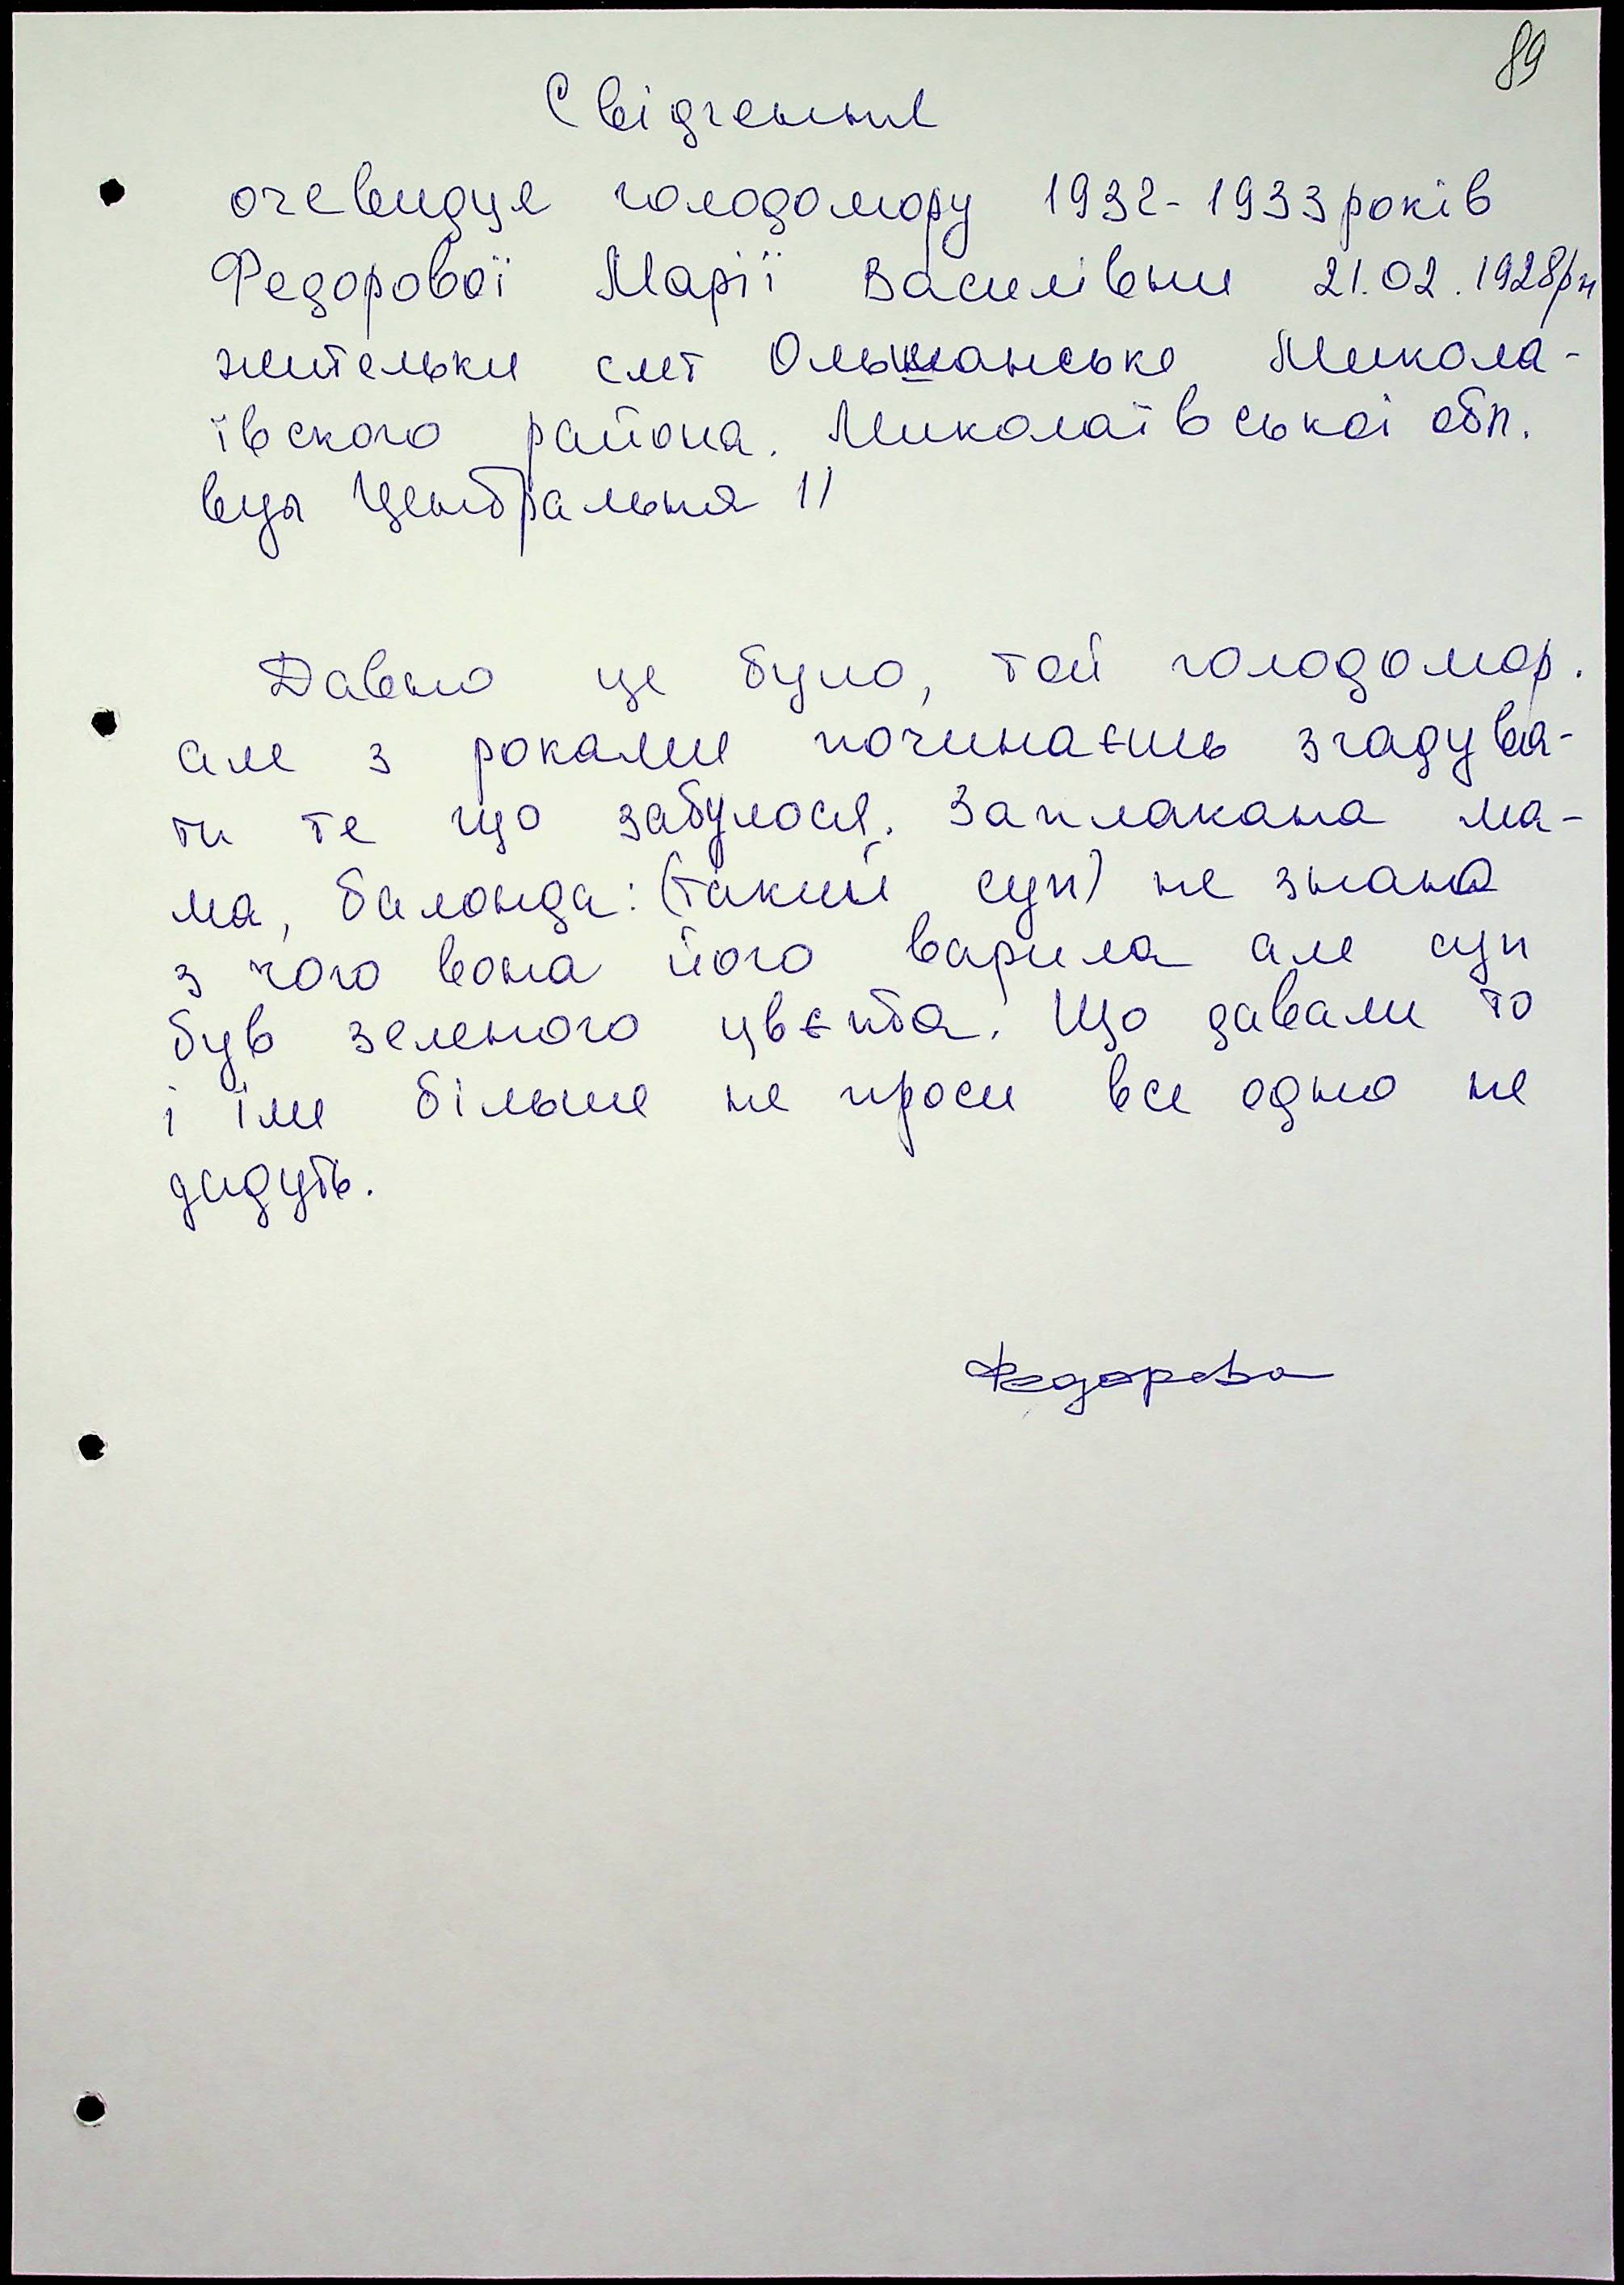 89
Свідчення
очевидця голодомору 1932-1933 років
Федорової Марії Василівни 21.02.1928рн
жительки смт Ольшанське Микола-
ївского района. Миколаївської обл.
вул Центральня 11
Давно це було, той голодомор.
але з роками починаєшь згадува-
ти те що забулося. Заплакана ма-
ма, баланда: (такий суп) не знана
з чого вона його варила але суп
був зеленого цвєта. Що давали то
і їли більше не проси все одно не
дадуть.
Федорова